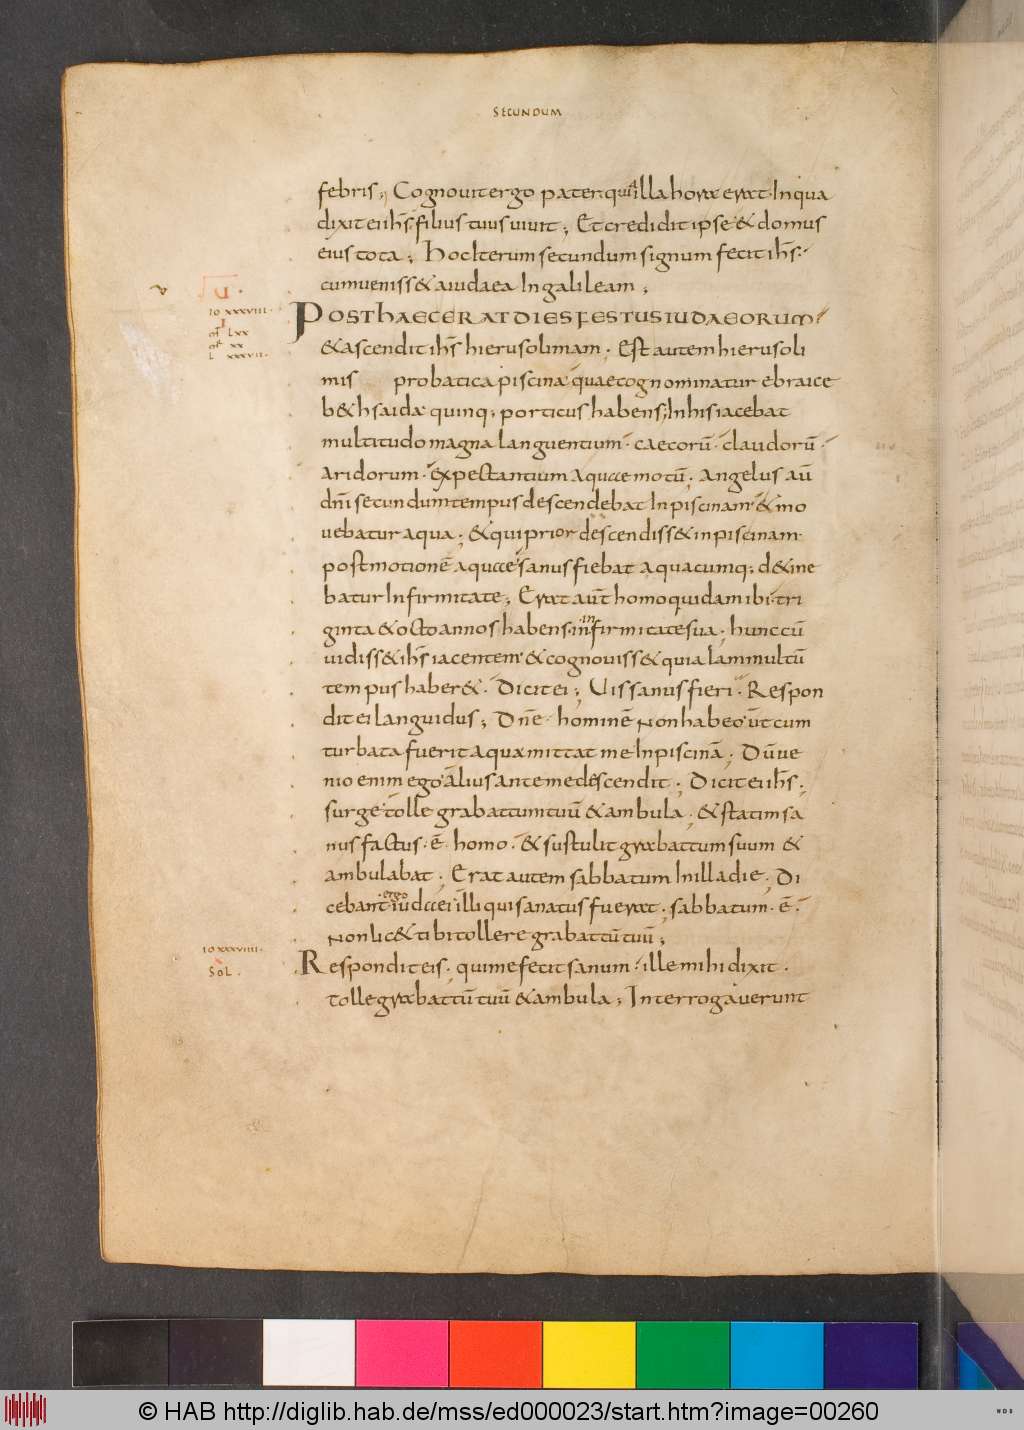 SECUNDUM
febris; Cognovit ergo pater. quia illa hora erat. In qua
dixit ei ihs. filius tuus vivit; Et credidit ipse & domus
eius tota; Hoc Iterum secundum signum fecit ihs.
cum veniss& a iudaea In galileam;
V.
IO XXXVIII.
I
mt LXX
mr XX
L XXXVII.
POST HAEC ERAT DIES FESTUS IUDAEORUM
& ascendit ihs hierusolimam. Est autem hierusoli
mis probatica piscina quae cognominatur ebraice
b&hsaida quinq; porticus habens; In his iacebat
multitudo magna languentium. caecorū. claudorū.
aridorum. expectantium aquae motū; Angelus aū
dñi secundum tempus descendebat In piscinam & mo
vebatur aqua; & qui prior descendiss& in piscinam
post motionē aquae sanus fiebat a quacumq; d&ine
batur Infirmitate; Erat aūt homo quidam ibi. tri
ginta & octo annos habens. in infirmitate sua; hunc cū
vidiss& ihs iacentem & cognoviss& quia Iam multū
tempus haber&. Dicit ei; Vis sanus fieri. Respon
dit ei languidus; Dñe. hominē Non habeo ut cum
turbata fuerit aqua mittat me In piscinā; Dū ve
nio enim ego Alius ante me descendit; Dicit ei ihs;
surge tolle grabattum tuū & ambula; & statim sa
nus factus. ē. homo. & sustulit grabattum suum &
ambulabat; Erat autem sabbatum In illa die; Di
cebant ergo iudaei illi qui sanatus fuerat; sabbatum. ē.
Non lic& tibi tollere grabattū tuū;
IO XXXVIIII.
SOL.
Respondit eis; qui me fecit sanum. ille mihi dixit.
Tolle grabattū tuū & ambula; Interrogaverunt
© HAB http://diglib.hab.de/mss/ed000023/start.htm?image=00260